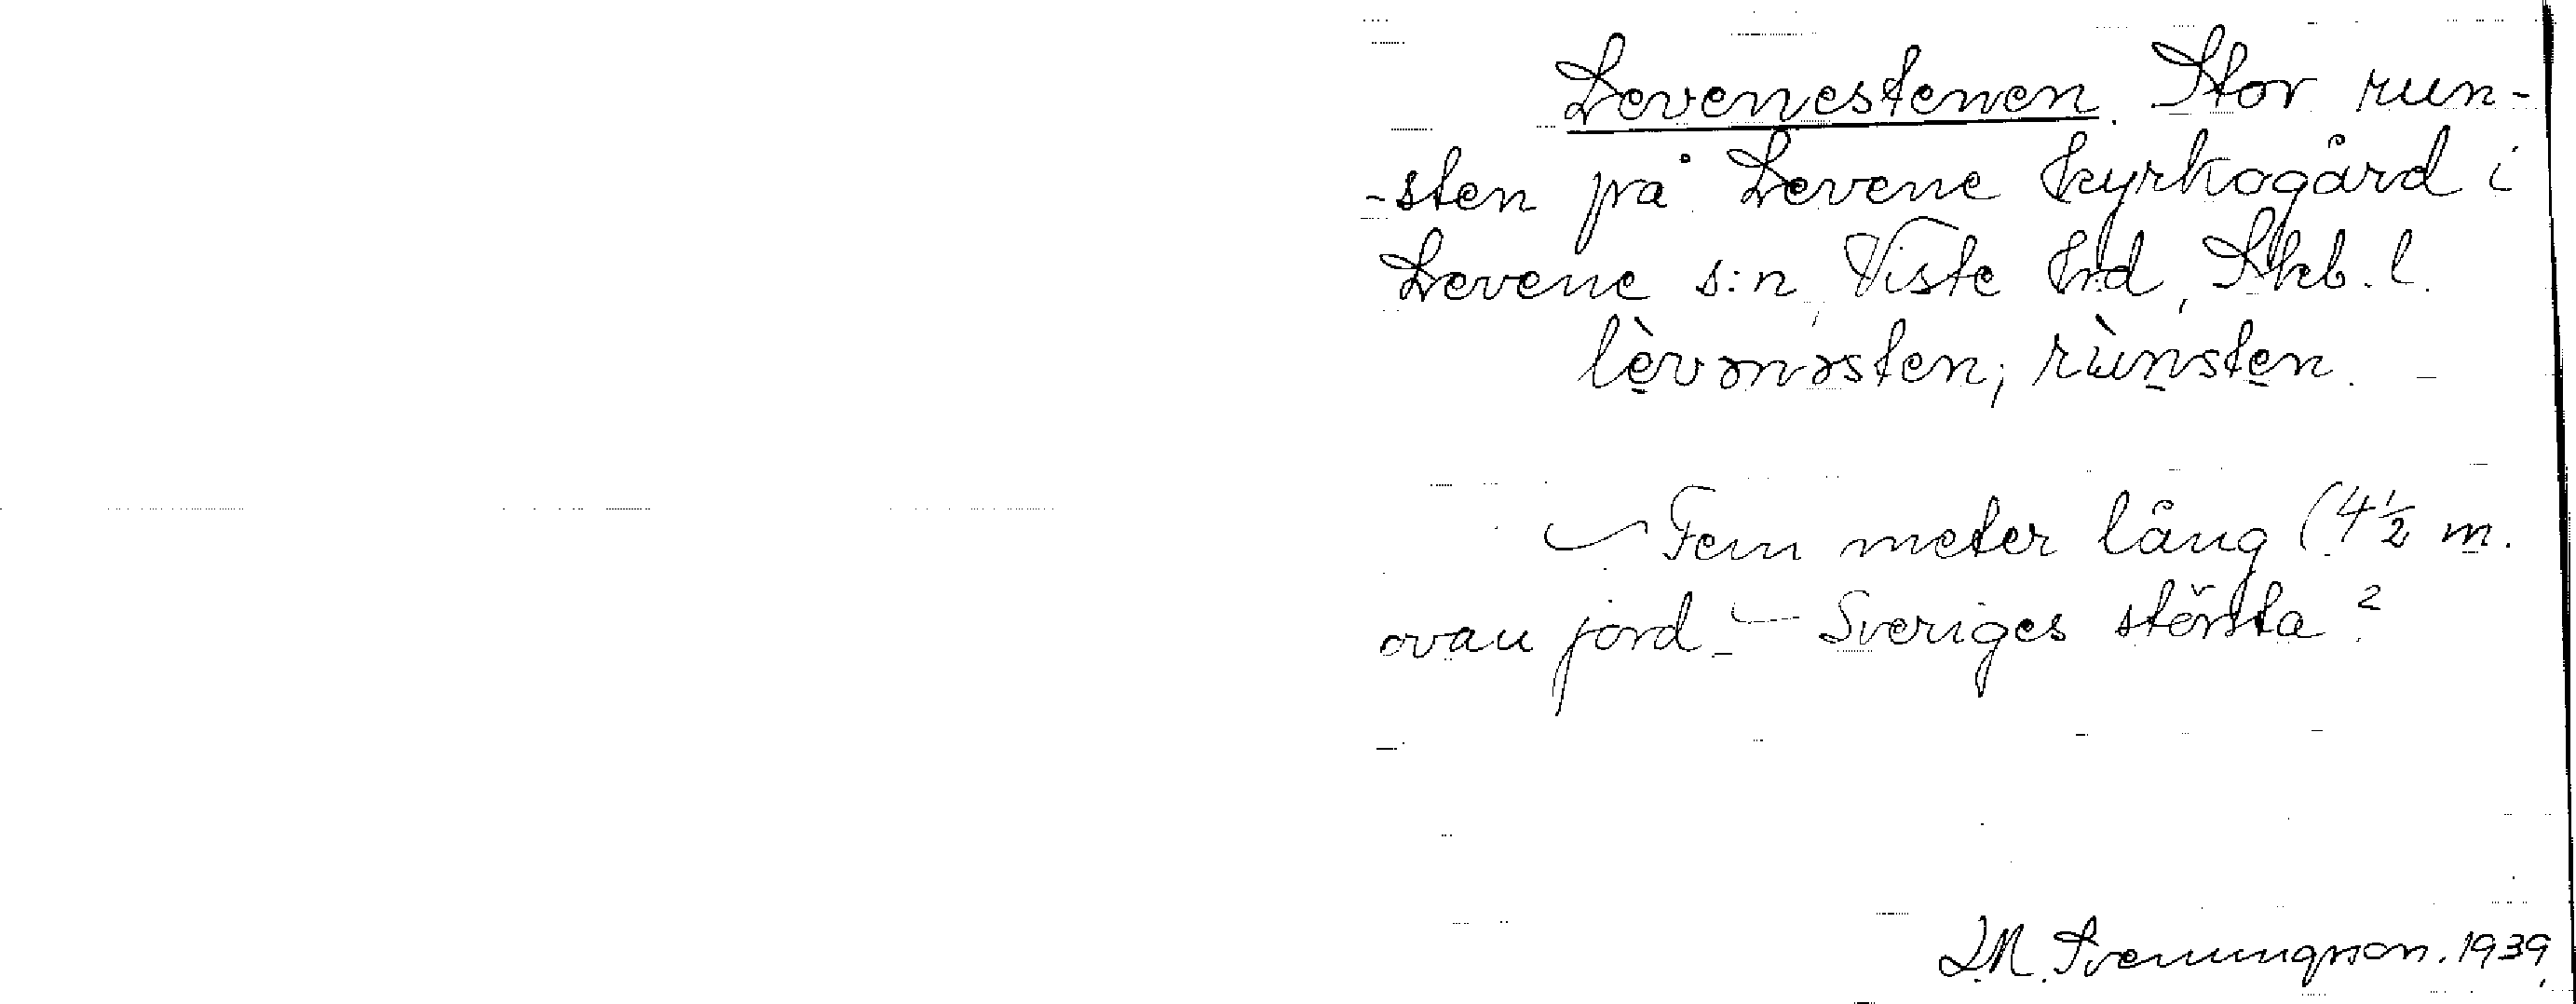 Levenestenen. Stor run-
-sten på Levene kyrkogård i
Levene s:n, Viste hrd, Skb. l.
lèvənəsten; rùnsten.
Fem meter lång (4½ m.
ovan jord. – Sveriges största?
Svenungson. 1939